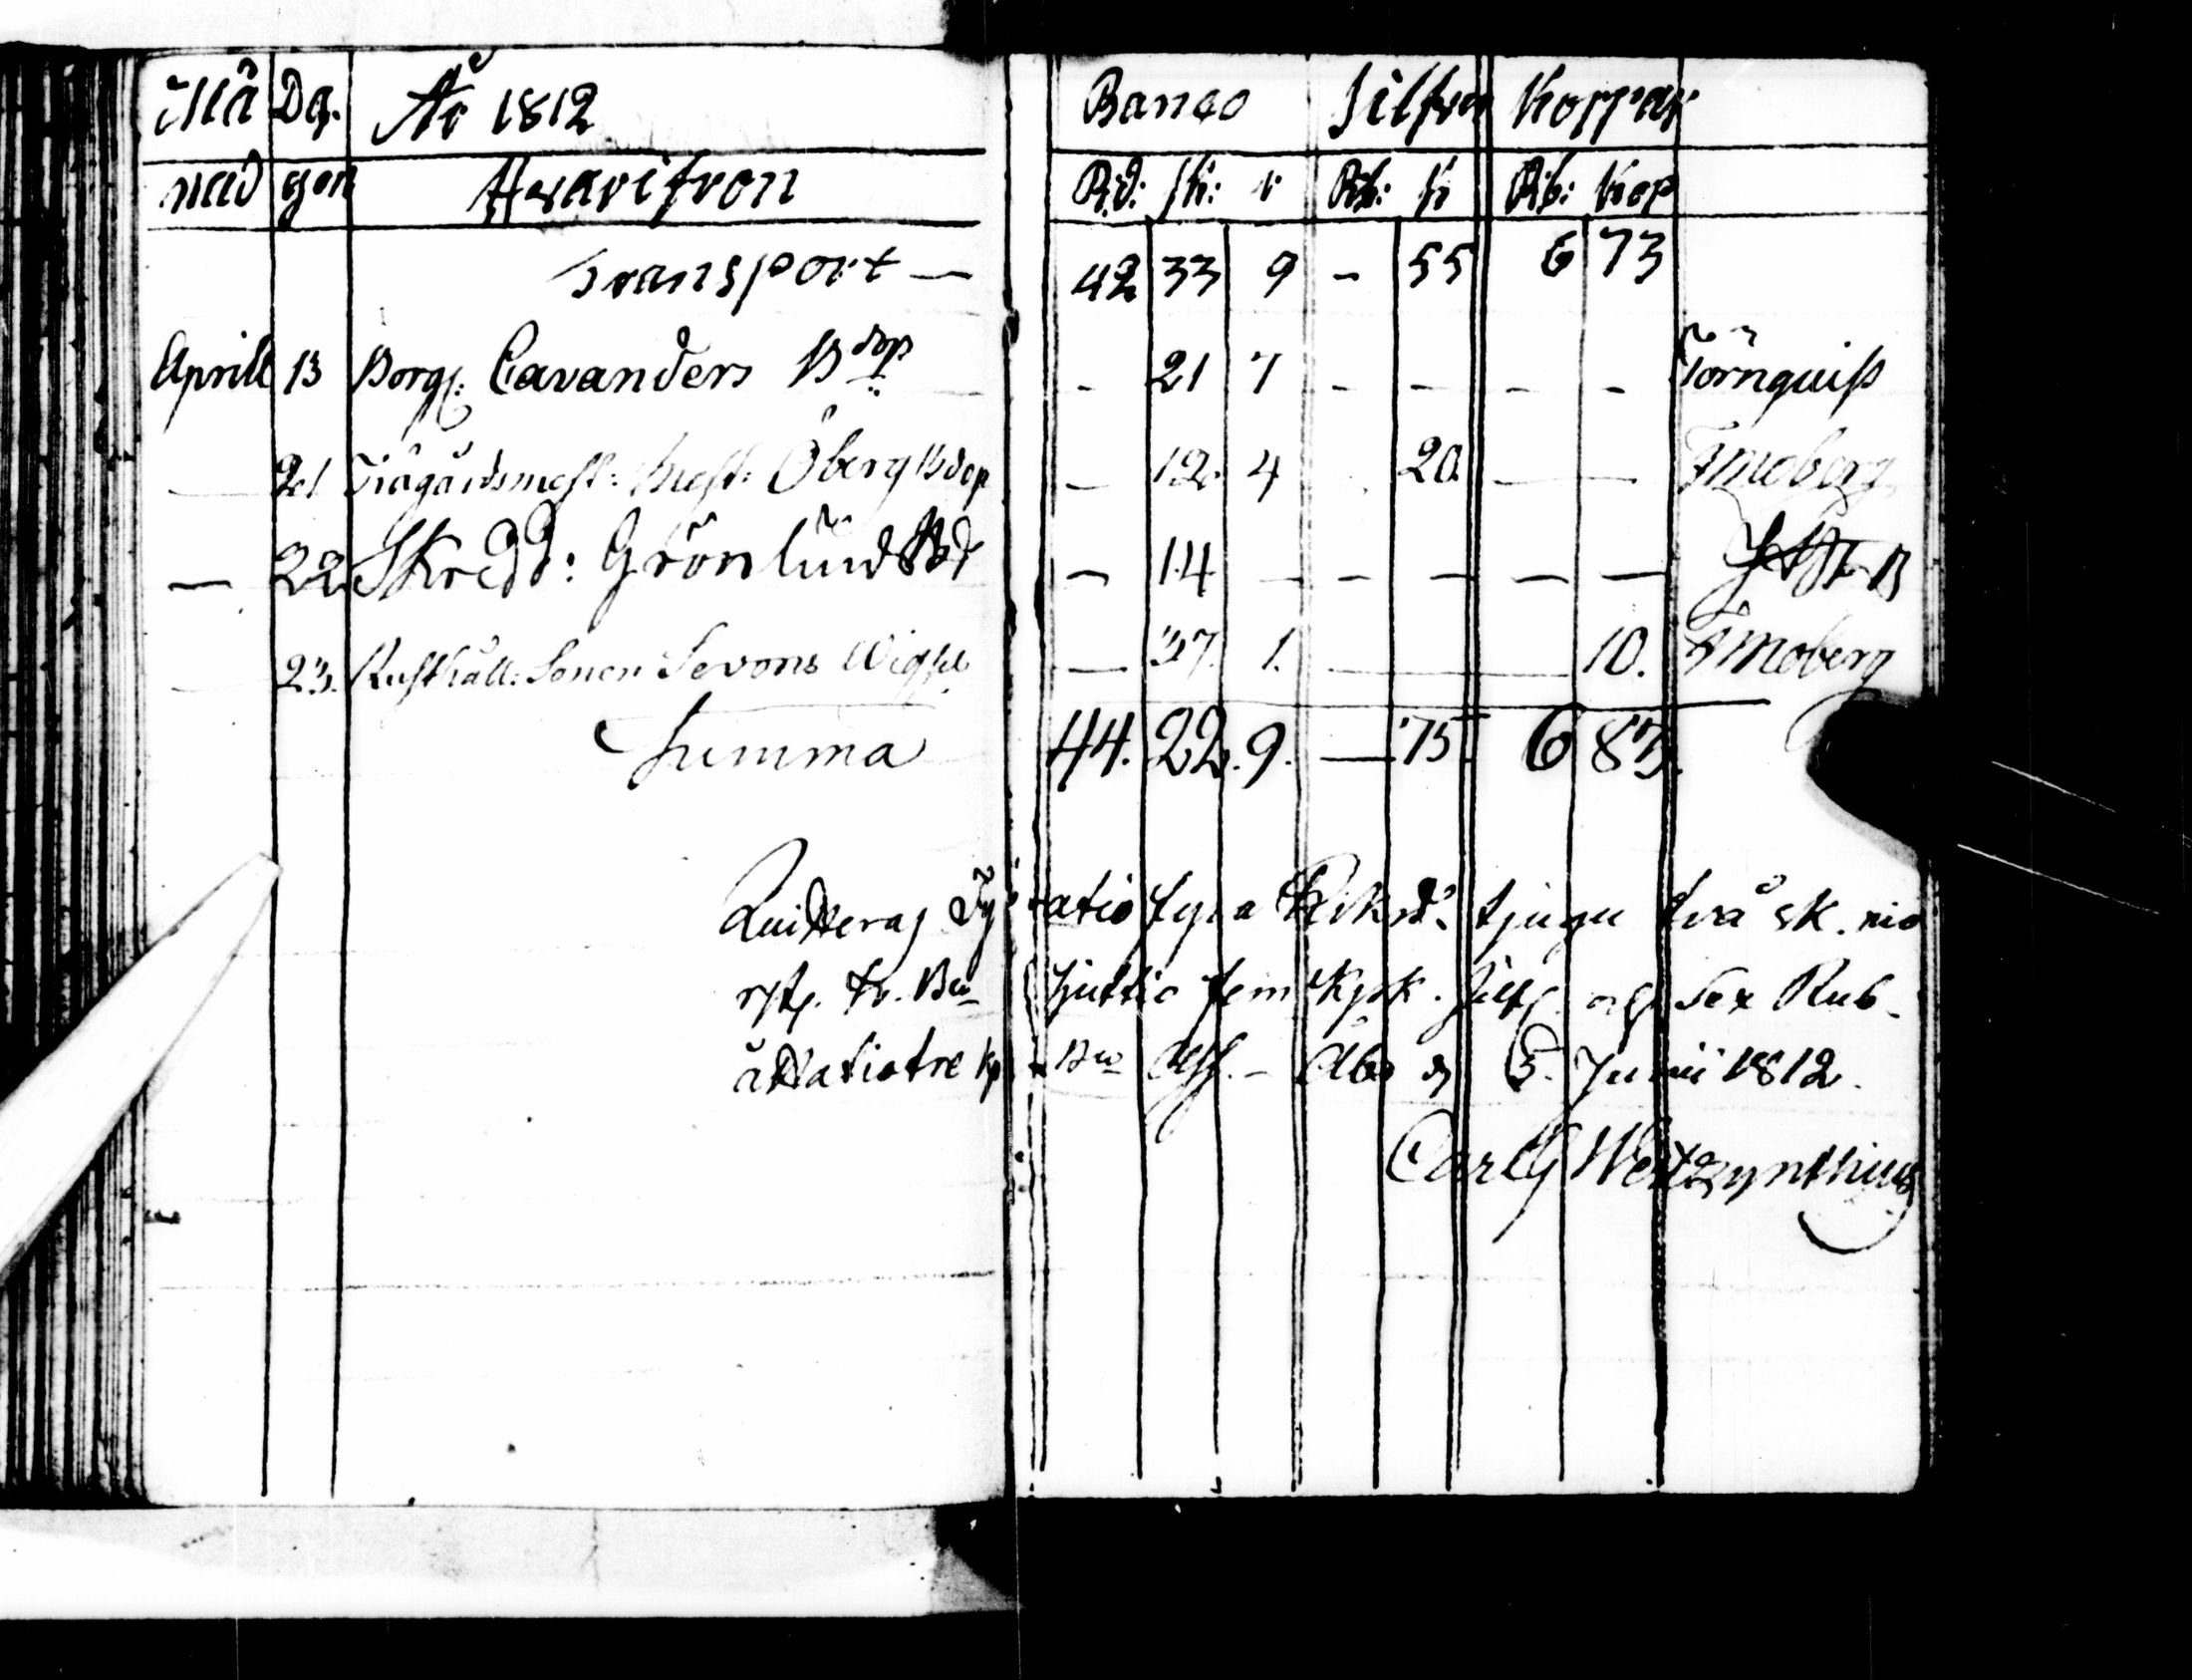 Må Dg. År 1812 Banco Silfver Koppar
nad gen Hvarifron Rd: sk: r Rb: K Rb: Kop
Transport — 42 33 9 - 55 6 73
Aprill 13 Borg: Cavanders Bdop - 21 7 - - - - Törnquist
— 21 Trägårdsmest: Öberg Bdop — 12. 4 20 — — FMoberg
— 22 Skredd: Grönlund — 14 — — — — —
— 23. Rusthåll: Sonen Sevons Wigsl — 37. 1. — 10. FMoberg
Summa 44. 22. 9. — 75 6 83.
Quitteras fyratio fyra Riksd: tjugu två sk. nio
rst. Bco Sjuttio fem Kpk. Silf. och Sex Rub.
åttatiotre Kp Bco Ass. — Åbo d 5. Junii 1812.
Carl G Wentzynthius